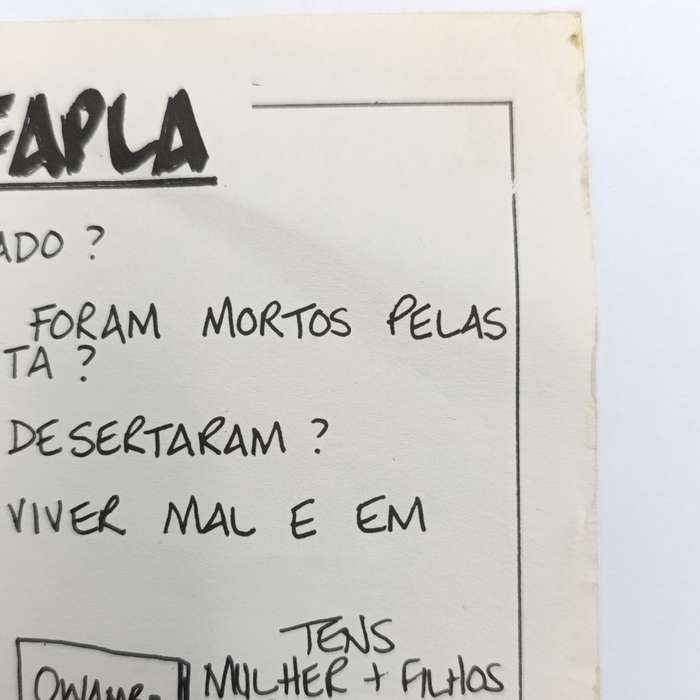 FAPLA
ADO ?
FORAM MORTOS PELAS
TA ?
DESERTARAM ?
VIVER MAL E EM
TENS
MULHER + FILHOS